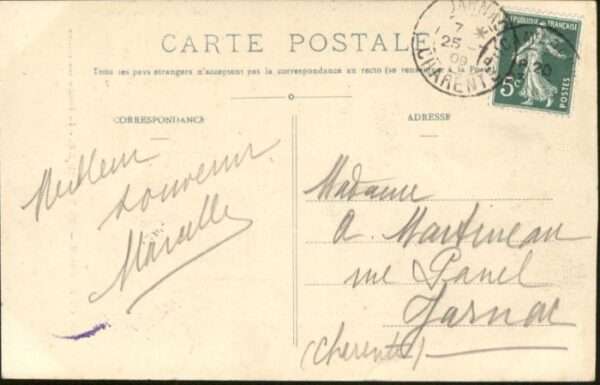 CARTE POSTALE
Tous les pays étrangers n'acceptent pas la correspondance au recto (se renseigner à la Poste)
CORRESPONDANCE
ADRESSE
Meilleur
souvenir
Marcelle
Madame
A. Martineau
rue Panel
Jarnac
(Cherente)
JARNAC
7
25
09
CHARENTE
REPUBLIQUE FRANÇAISE
5c
POSTES